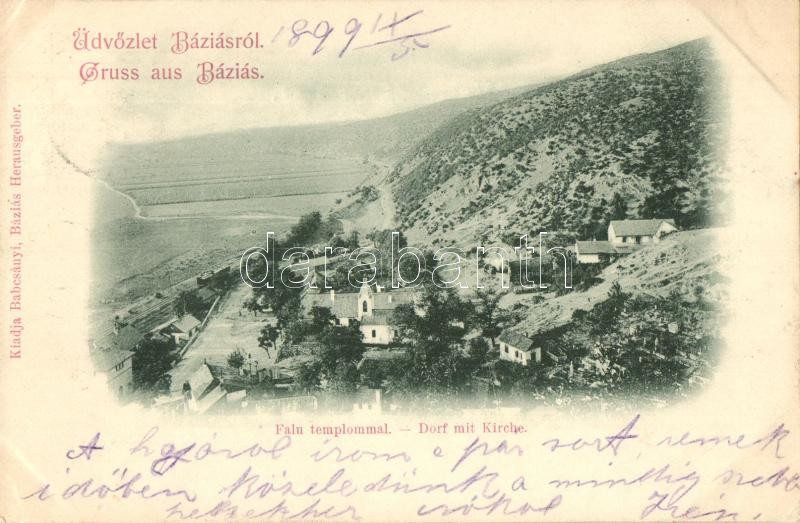 Üdvözlet Báziásról. 1899 IX/5.
Gruss aus Báziás.
Kiadja Babcsányi, Báziás Herausgeber.
darabanth
Falu templommal. — Dorf mit Kirche.
A hajóról irom e pár sort, remek
időben közeledünk a mindig szebb
csókol Irén.